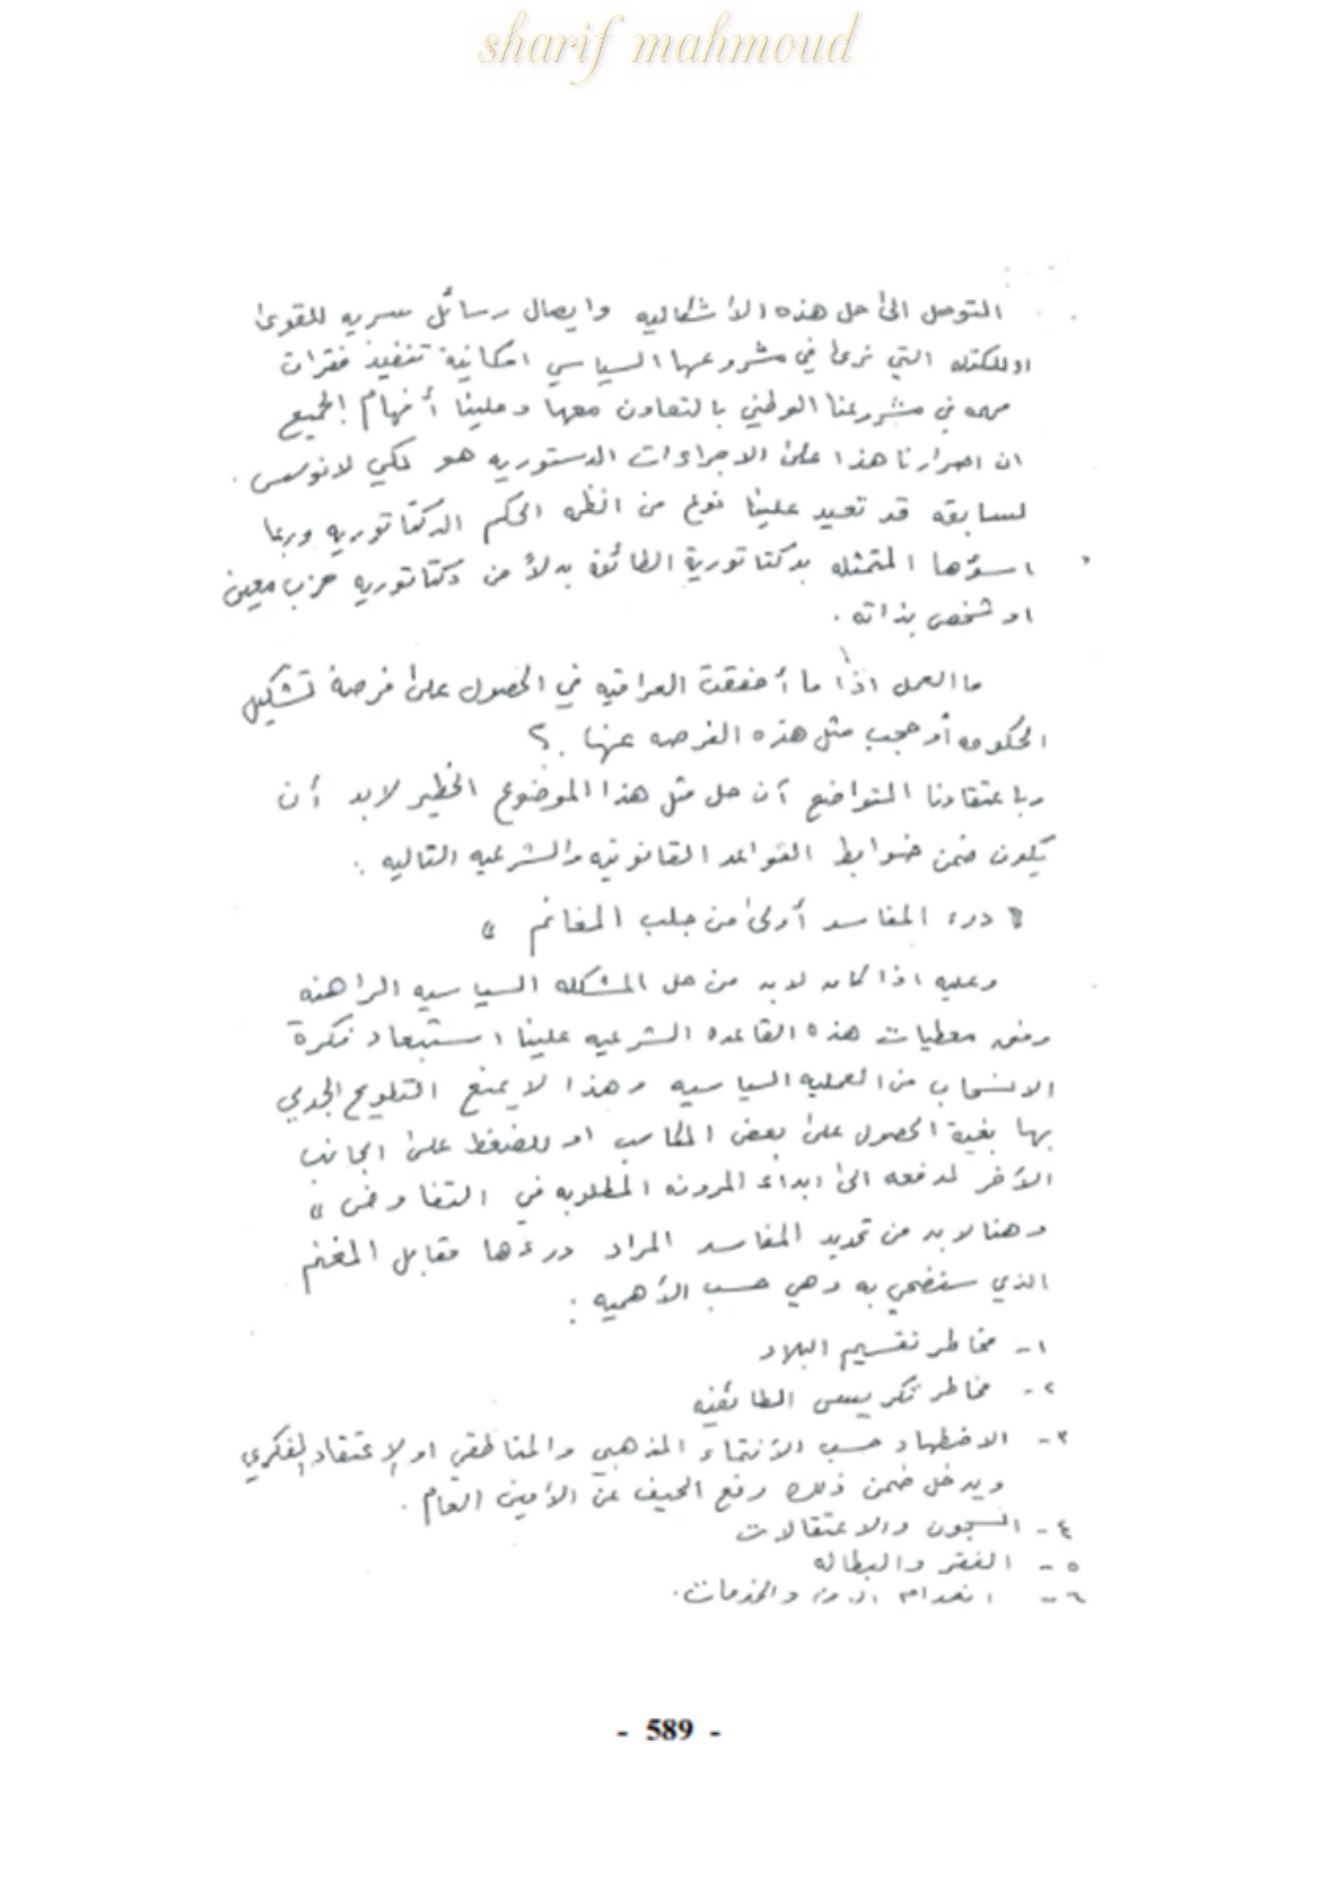 sharif mahmoud
التوصل الى حل هذه الأشكاليه وايصال رسائل سريه للقوى
او للكتله التي نرى في مشروعها السياسي امكانية تنفيذ فقرات
مهمه في مشروعنا الوطني بالتعاون معها وعلينا أفهام الجميع
ان اصرارنا هذا على الاجراءات الدستوريه هو لكي لانؤسس
لسابقه قد تعيد علينا نوع من انظمه الحكم الدكتاتوريه وربما
اسوؤها المتمثله بدكتاتورية الطائفه بدلاً من دكتاتوريه حزب معين
او شخص بذاته .
ماالعمل اذا ما أخفقت العراقيه في الحصول على فرصة تشكيل
الحكومه أو حجب مثل هذه الفرصه عنها . ؟
وباعتقادنا المتواضع أن حل مثل هذا الموضوع الخطير لابد أن
يكون ضمن ضوابط القواعد القانونيه والشرعيه التاليه :
" درء المفاسد أولى من جلب المغانم "
وعليه اذا كان لابد من حل المشكله السياسيه الراهنه
وفق معطيات هذه القاعده الشرعيه علينا استبعاد فكرة
الانسحاب من العمليه السياسيه وهذا لا يمنع التلويح الجدي
بها بغية الحصول على بعض المكاسب او للضغط على الجانب
الأخر لدفعه الى ابداء المرونه المطلوبه في التفاوض "
وهنا لابد من تحديد المفاسد المراد درءها مقابل المغنم
الذي سنضحي به وهي حسب الأهميه :
١- مخاطر تقسيم البلاد
٢- مخاطر تكريس الطائفيه
٣- الاضطهاد حسب الأنتماء المذهبي والمناطقي او الإعتقاد الفكري
ويدخل ضمن ذلك رفع الحيف عن الأمين العام .
٤- السجون والاعتقالات
٥- الفقر والبطاله
٦- انعدام الامن والخدمات .
- 589 -